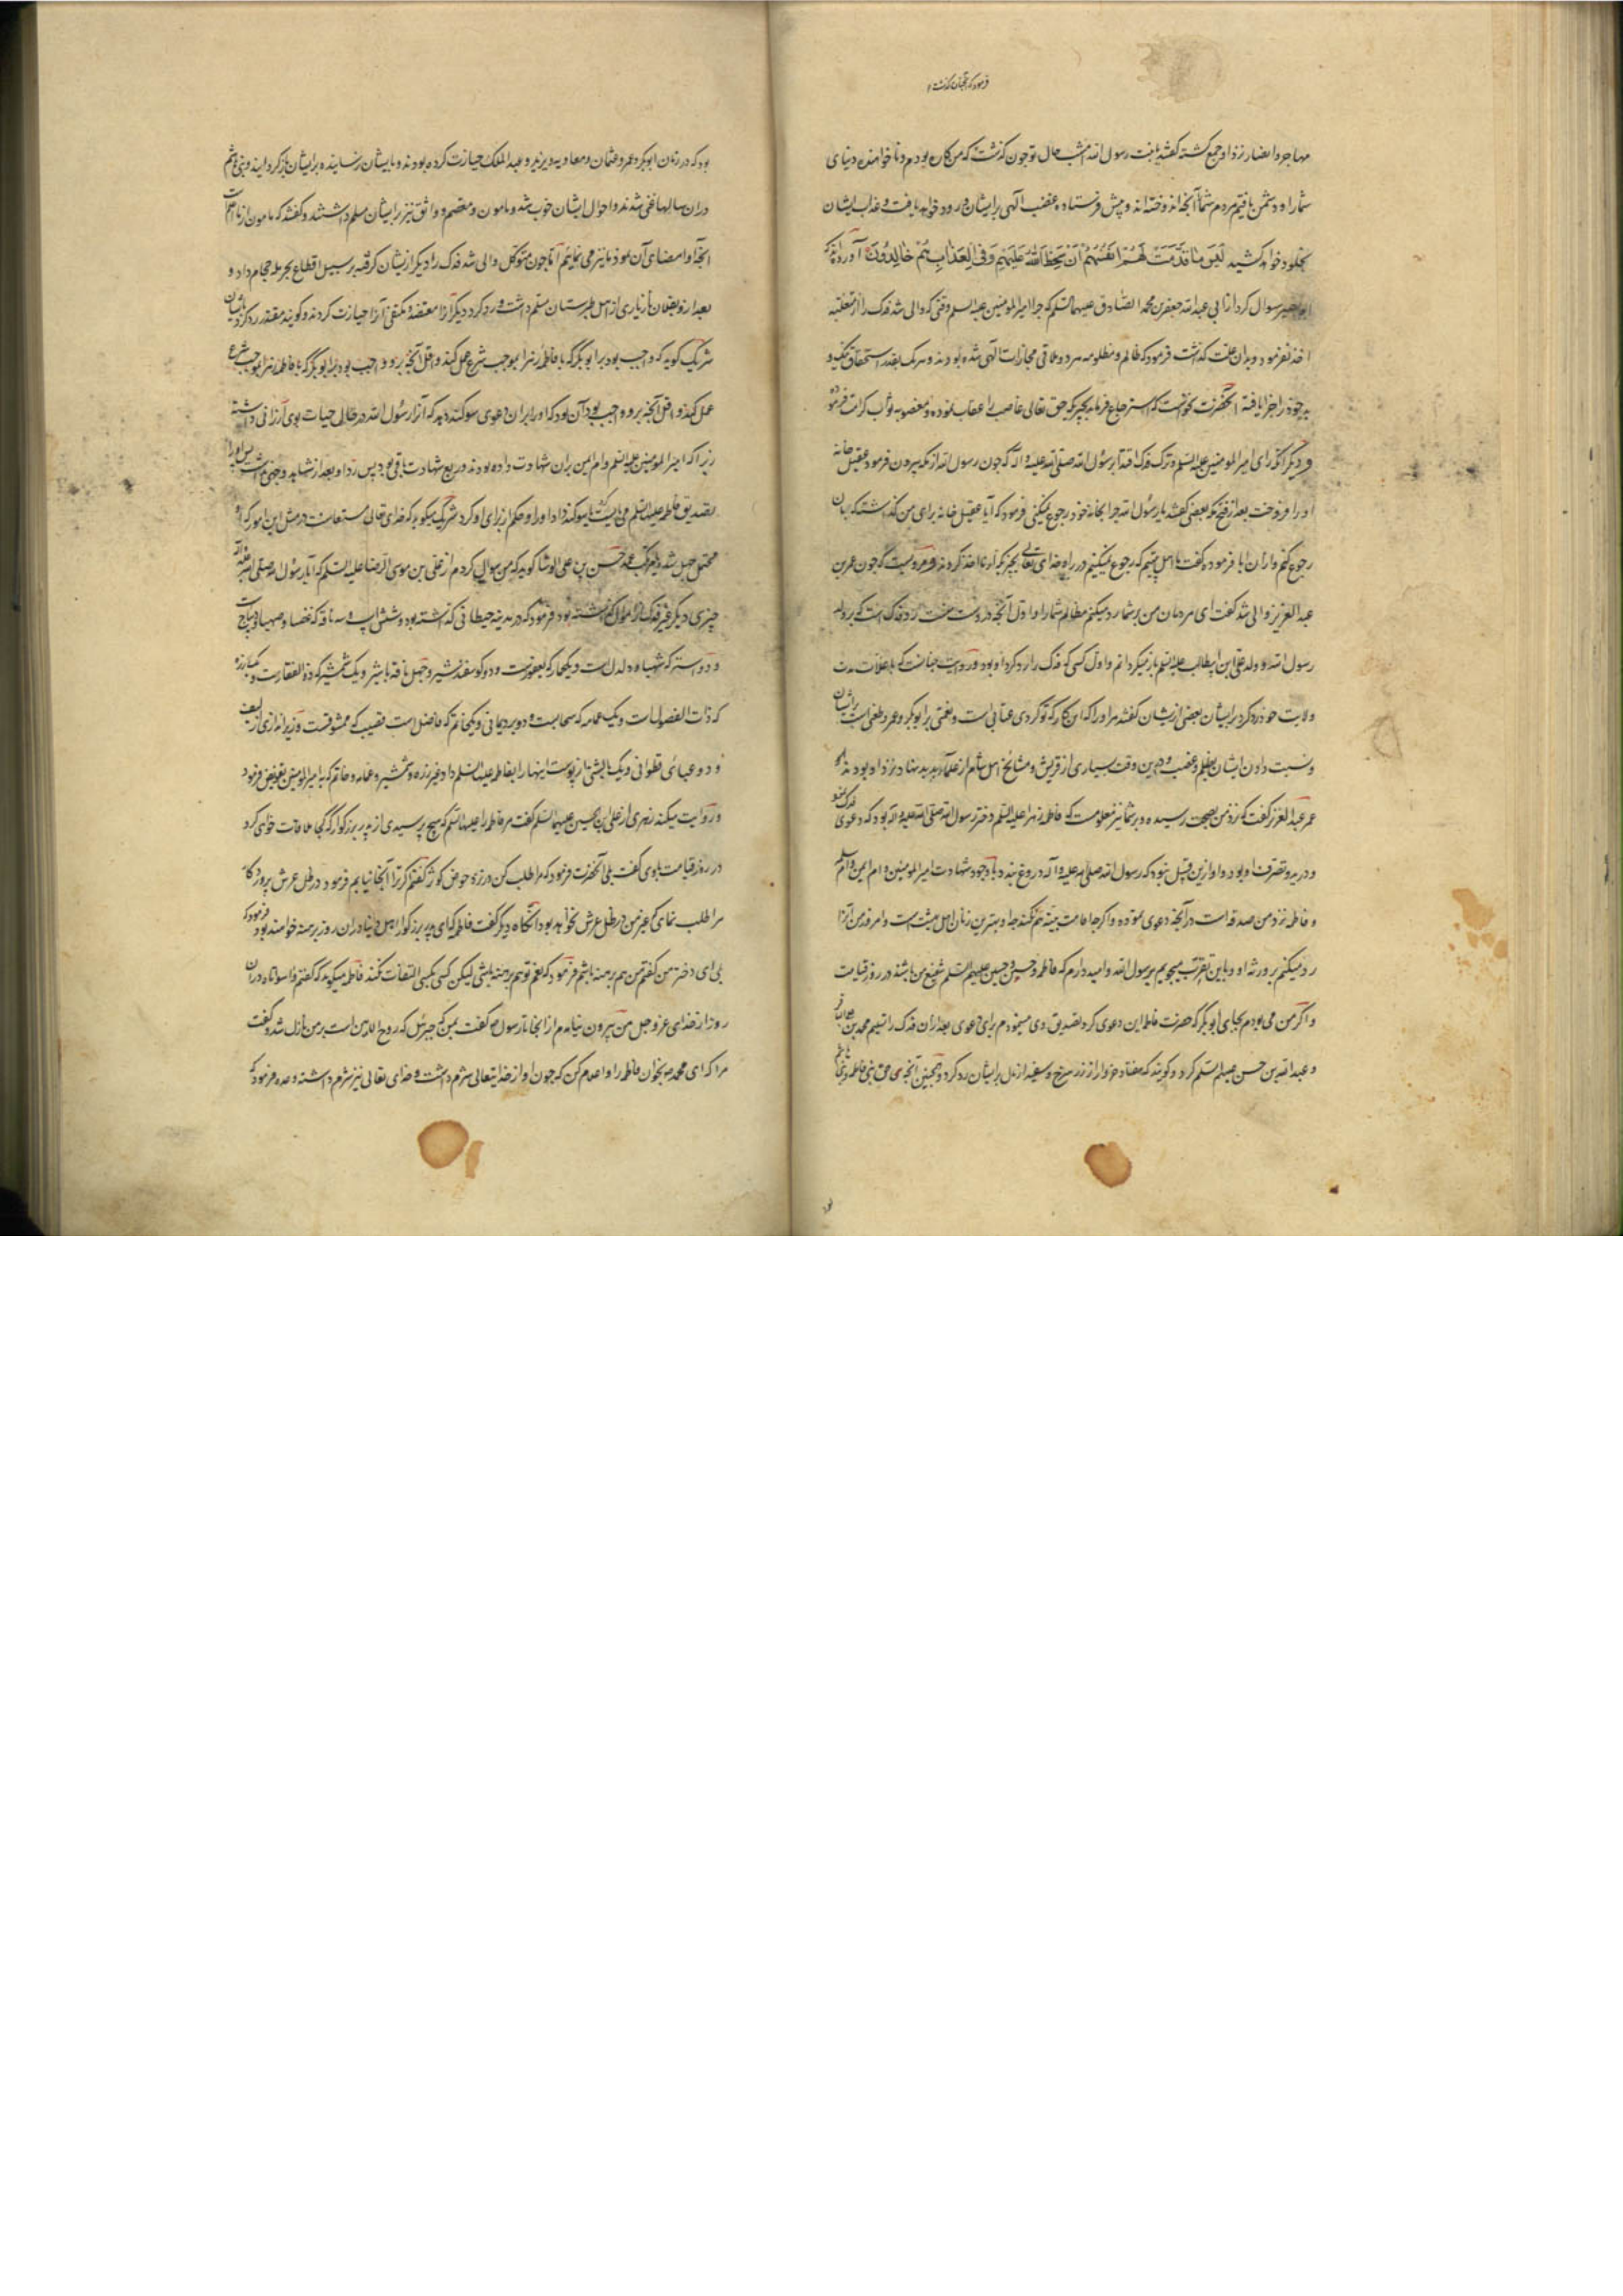 مهاجر و انصار نزد او جمع گشته گفتند یا بنت رسول الله امشب حال تو چون گذشت که من کاره بودم دنیای
شما را و دشمن یافتم مردم شما آنچه اندوخته اند و پیش فرستاده غضب الهی بر ایشان فرود خواهد یافت و عذاب ایشان
بخلود خواهد کشید لَبِئسَ مَا قَدَّمَت لَهُم اَنفُسُهُم اَن سَخِطَ اللهُ عَلَیهِم وَ فِی العَذَابِ هُم خَالِدُونَ آورده اند که
ابو بصیر سوال کرد از ابی عبدالله جعفر بن محمد الصادق علیهما السلم که چرا امیر المومنین علیه السلم وقتی که والی شد فدک را
اخذ نفرمود و بدان علت گذاشت فرمود که ظالم و مظلومه هر دو ملاقی مجازات الهی شده بودند و هر یک بقدر استحقاق نیک و
بد خود را جزا یافته آنحضرت نخواست که استرجاع فرماید بچیزی که حق تعالی غاصب را عقاب نموده و مغصوبه ثواب کرامت فرموده
و دیگر آنکه رای امیر المومنین علیه السلم در ترک فدک اقتدا برسول الله صلی الله علیه و آله که چون رسول الله از مکه بیرون فرمود عقیل خانه
او را فروخت بعد از فتح مکه بعضی گفتند یا رسول الله چرا بخانه خود رجوع نمیکنی فرمود که آیا عقیل خانه برای من گذاشته که بان
رجوع کنم و از آن ابا فرمود و گفت ما اهل بیتیم که رجوع نمیکنیم در راه خدای تعالی بچیزی که از ما اخذ کردند و مرویست که چون عمر بن
عبد العزیز والی شد گفت ای مردمان من بر شما رد میکنم مظالم شما را و اول آنچه در دست منست رد فدک است که بر ولد
رسول الله و ولد علی ابن ابیطالب علیه السلم باز میگردانم و اول کسی که فدک را رد کرد او بود و روایت چنانست که با غلات مدت
ولایت خود رد کرد بر ایشان بعضی از ایشان گفتند مر او را که این کار که تو کردی عتابی است و طعنی بر ابو بکر و عمر و طعنی است بر ایشان
و نسبت دادن ایشان بظلم و غضب و درین وقت بسیاری از قریش و مشایخ اهل شام از علماء نزد او بودند
عمر عبد العزیز گفت که نزد من بصحت رسیده و بر شما نیز معلومست که فاطمه زهرا علیه السلم دختر رسول الله صلی الله علیه و آله بود که دعوی فدک نمود
و در ید و تصرف او بود و او ازین قبیل نبود که رسول الله صلی الله علیه و آله دروغ بندد با وجود شهادت امیر المومنین و ام ایمن و ام سلم
و فاطمه نزد من صدقه است در آنچه دعوی نموده و اگر چه اقامت بینه هم نکند چه او بهترین زنان اهل بهشت است و امروز من آنرا
رد میکنم بر ورثه او و باین تقرب میجویم برسول الله و امید دارم که فاطمه و حسن و حسین علیهم السلم شفیع من باشند در روز قیامت
و اگر من می بودم بجای ابو بکر که حضرت فاطمه این دعوی کرد تصدیق وی مینمودم برای دعوی بعد از آن فدک را تسلیم محمد بن علی الباقر
و عبد الله بن حسن علیهم السلم کرد و گویند که هفتاد خروار از زر سرخ و سفید از مال بر ایشان رد کرد و همچنین آنچه می حق بنی فاطمه و بنی هاشم
بود که در زمان ابو بکر و عمر و عثمان و معاویه و یزید و عبد الملک حیازت کرده بودند و بایشان نرسانیده بر ایشان باز گردانید و بنی هاشم
در آن سالها غنی شدند و احوال ایشان خوب شد و مامون و معتصم و واثق نیز بر ایشان مسلم داشتند و گفتند که مامون از ما
آنچه او امضای آن نمود ما نیز می نمائیم اما چون متوکل والی شد فدک را دیگر از ایشان گرفته بر سبیل اقطاع بحرمله حجام داد و
بعد از و بفلان بازیاری از اهل طبرستان مسلم داشت و رد کرد دیگر آنرا معتضد و مکتفی آنرا حیازت کردند و گویند مقتدر رد کرد بایشان
شریک گوید که واجب بود بر ابو بکر که با فاطمه زهرا بموجب شرع عمل کند و اقل آنچه برو واجب بود بر ابو بکر که با فاطمه زهرا بموجب شرع
عمل کند و اقل آنچه برو واجب بود آن بود که او را بر آن دعوی سوگند دهد که آنرا رسول الله در حال حیات بوی ارزانی داشته
زیرا که امیر المومنین علیه السلم و ام ایمن بران شهادت داده بودند و ربع شهادت باقی بود پس رد او بعد از شاهد وجهی نداشت پس او را
بتصدیق فاطمه علیها السلم می بایست یا سوگند داد او را و حکم از برای او کرد شریک میگوید که خدای تعالی مستعانست در مثل این امور که
حسن بن علی الوشا گوید که من سوال کردم از علی بن موسی الرضا علیه السلم که آیا رسول الله صلی الله علیه و آله
چیزی دیگر غیر فدک از اموال گذاشته بود فرمود که در مدینه حیطانی گذاشته بود و شش اسب و سه ناقه که غضبا و صهبا و دیباج است
و دو استر که شهبا و دلدل است و یک حمار که یعفورست و دو گوسفند شیر و چهل ناقه با شیر و یک شمشیر که ذو الفقارست و یک زره
که ذات الفصول است و یک عمامه که سحابست و دو برد یمانی و یک خاتم که فاضل است و قضیب که ممشوقست و زیر اندازی از لیف
و دو عبائی قطوانی و یک بالشتی از پوست اینها را بفاطمه علیها السلم داد غیر زره و شمشیر و عمامه و خاتم که بامیر المومنین تفویض فرمود
و روایت میکند زهری از علی ابن الحسین علیهما السلم گفت مر فاطمه را علیها السلم که هیچ پرسیدی از پدر بزرگوار که کجا ملاقات خواهی کرد
در روز قیامت باوی گفت بلی آنحضرت فرمود که مرا طلب کن در نزد حوض کوثر گفتم اگر ترا آنجا نیابم فرمود در ظل عرش پروردگار
مرا طلب نمای که غیر من در ظل عرش نخواهد بود آنگاه دیگر گفت فاطمه که ای پدر بزرگوار اهل دنیا در آن روز برهنه خواهند بود فرمود که
بلی ای دختر من گفتم من هم برهنه باشم فرمود که نعم تو هم برهنه باشی لیکن کسی بکسی التفات نکند فاطمه میگوید که گفتم وا سواتاه در آن
روز از خدای عز و جل من بیرون نیامدم از آنجا تا رسول ص گفت بمن که جبرئیل که روح الامین است بر من نازل شد و گفت
مرا که ای محمد بخوان فاطمه را و اعلام کن که چون او از خدایتعالی شرم داشت و خدای تعالی نیز شرم داشته وعده فرمود که